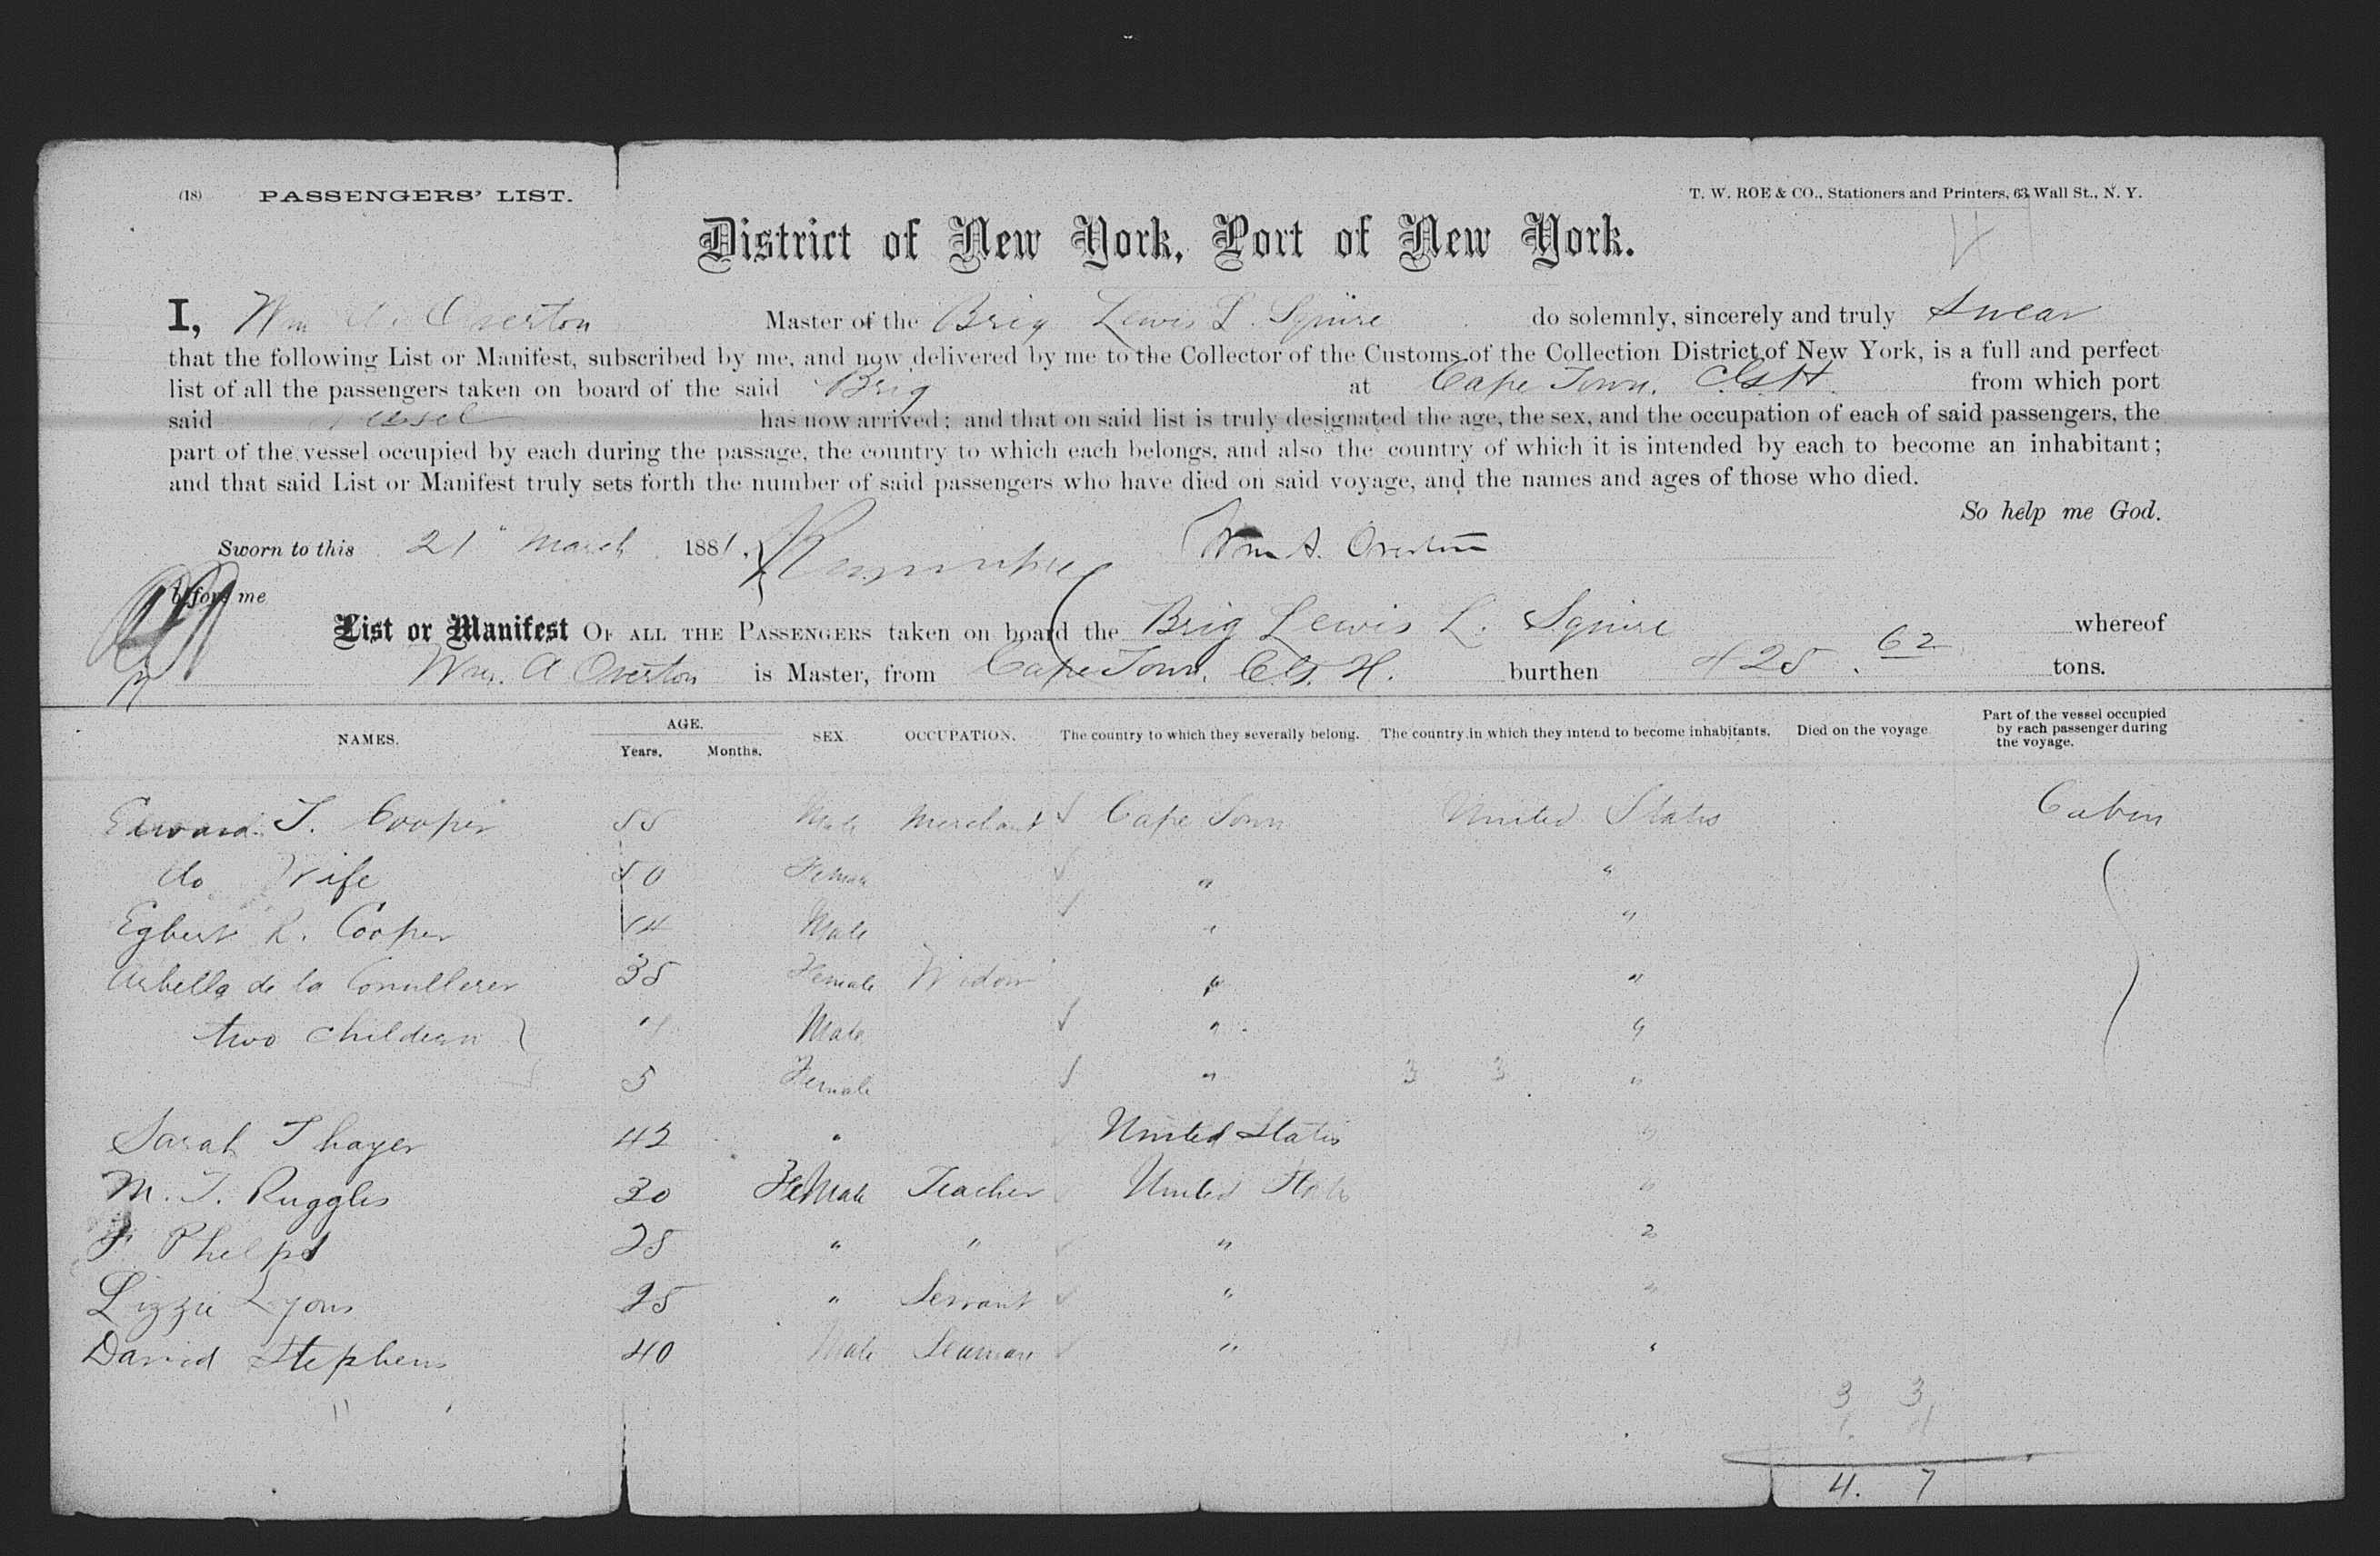 (18) PASSENGERS' LIST. T. W. ROE & CO., Stationers and Printers, 63 Wall St., N. Y.
District of New York, Port of New York.
I, Wm A. Overton Master of the Brig Lewis L. Squire do solemnly, sincerely and truly Swear
that the following List or Manifest, subscribed by me, and now delivered by me to the Collector of the Customs of the Collection District of New York, is a full and perfect
list of all the passengers taken on board of the said Brig at Cape Town. C.G.H. from which port
said Vessel has now arrived; and that on said list is truly designated the age, the sex, and the occupation of each of said passengers, the
part of the vessel occupied by each during the passage, the country to which each belongs, and also the country of which it is intended by each to become an inhabitant;
and that said List or Manifest truly sets forth the number of said passengers who have died on said voyage, and the names and ages of those who died.
So help me God.
Sworn to this 21" March 1881, Wm A. Overton
before me
List or Manifest OF ALL THE PASSENGERS taken on board the Brig Lewis L. Squire whereof
Wm. A Overton is Master, from Cape Town. C.G.H. burthen 425.62 tons.
NAMES. AGE. Years. Months. SEX. OCCUPATION. The country to which they severally belong. The country in which they intend to become inhabitants. Died on the voyage Part of the vessel occupied by each passenger during the voyage.
Edward T. Cooper 55 Male Merchant Cape Town United States Cabin
do Wife 50 Female " "
Egbert R. Cooper 14 Male " "
de la 35 Female Widow " "
two children 4 Male " "
5 Female " 3 3 "
Sarah Thayer 42 " United States "
M. T. Ruggles 30 Female Teacher United States "
Phelps 25 " " " "
Lizzie Lyons 25 " Servant " "
David Stephens 40 Male Seaman " "
3 3
1 4
4. 7